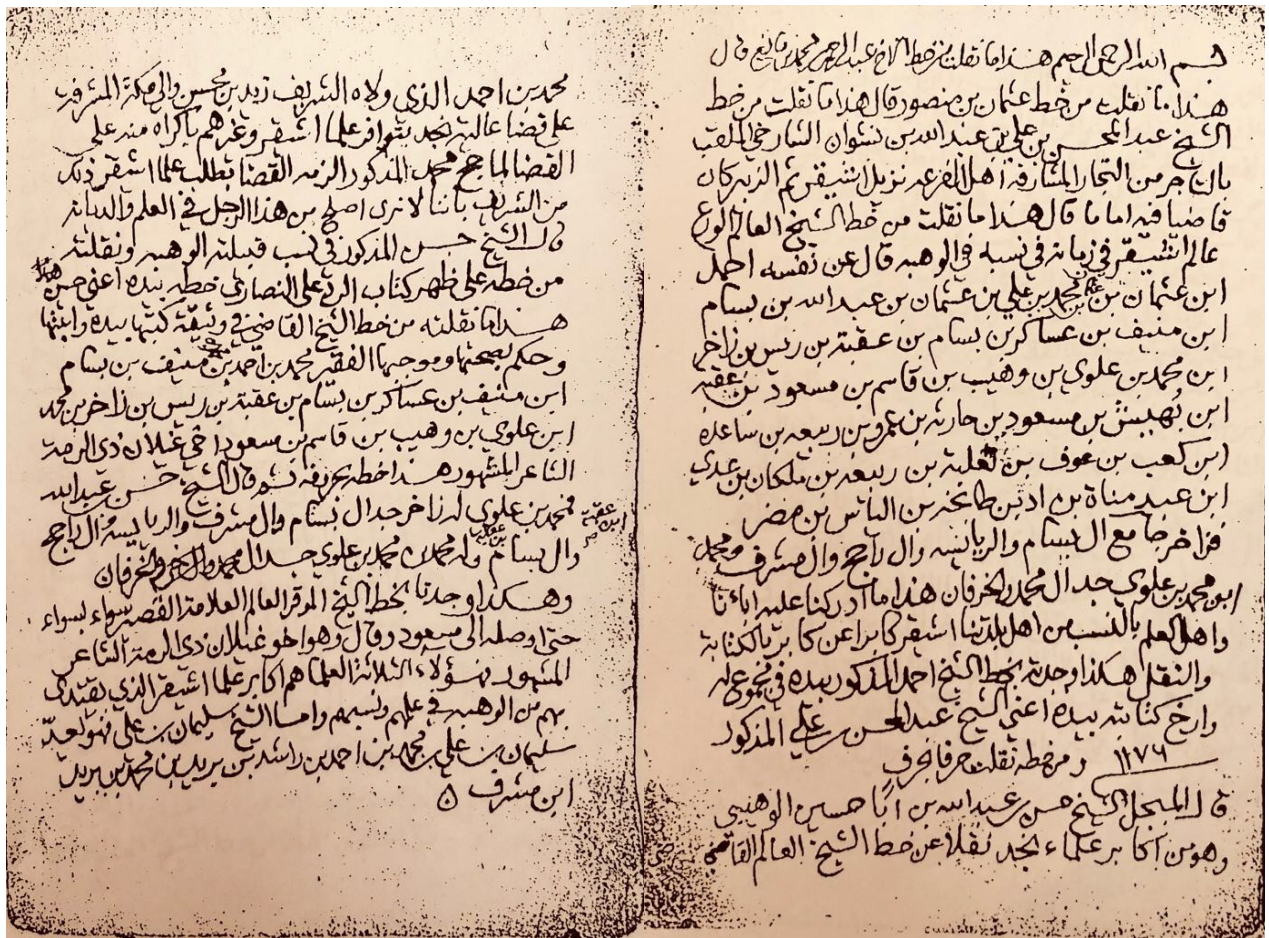 بسم الله الرحمن الرحيم هذا ما نقلت من خط الاخ عبد الرحمن محمد بن مانع قال
هذا ما نقلت من خط عثمان بن منصور قال هذا ما نقلت من خط
الشيخ عبد المحسن بن علي بن عبد الله بن نشوان الشارخي الملقب
بالتاجر من التجار المشارفة اهل الفرعه نزيل اشيقر ثم الزبير كان
قاضيا فيه اماما قال هذا ما نقلت من خط الشيخ العالم الورع
عالم اشيقر في زمانه في نسبه في الوهبه قال عن نفسه احمد
ابن عثمان بن محمد بن علي بن عثمان بن عبد الله بن بسام
ابن منيف بن عساكر بن بسام بن عقبة بن ريس بن زاخر
ابن محمد بن علوي بن وهيب بن قاسم بن مسعود بن عقبه
ابن نهيش بن مسعود بن حارثه بن عمرو بن ربيعه بن ساعده
ابن كعب بن عوف بن ثعلبة بن ربيعه بن ملكان بن عدي
ابن عبد مناة بن اد بن طابخه بن الياس بن مضر
فزاخر جامع ال بسام والريائسه وال راجح وال مشرف ومحمد
ابن محمد بن علوي جد ال محمد والخرفان هذا ما ادركنا عليه اباءنا
واهل العلم بالنسب من اهل بلدتنا اشيقر كابرا عن كابر بالكتابة
والنقل هكذا وجدته بخط الشيخ احمد المذكور بيده في مجموع له
وارخ كتابته بيده اعني الشيخ عبد المحسن بن علي المذكور
١٢٧٦ ومن خطه نقلت حرفا بحرف
قال المبجل الشيخ حسن بن عبد الله بن ابا حسين الوهيبي
وهو من اكابر علماء نجد نقلا عن خط الشيخ العالم القاضي
محمد بن احمد الذي ولاه الشريف زيد بن محسن والي مكة المشرفة
على قضا عالية نجد بتوافر علما اشيقر وغيرهم باكراه منه على
القضا لما حج محمد المذكور الزمه القضا بطلب علما اشيقر ذلك
من الشريف باننا لا نرى اصلح من هذا الرجل في العلم والديانه
قال الشيخ حسن المذكور في نسب قبيلته الوهبه ونقلته
من خطه على ظهر كتاب الرد على النصارى خطه بيده اعني حسن
هذا ما نقلته من خط الشيخ القاضي في وثيقة كتبها بيده واثبتها
وحكم بصحتها وموجبها الفقير محمد بن احمد بن منيف بن بسام
ابن منيف بن عساكر بن بسام بن عقبة بن ريس بن زاخر بن محمد
ابن علوي بن وهيب بن قاسم بن مسعود اخي غيلان ذي الرمة
الشاعر المشهور هذا خطه بحروفه ثم قال الشيخ حسن بن عبد الله
فمحمد بن علوي له زاخر جد ال بسام وال مشرف والرياسه وال راجح
وال بسام بن عقبه وله محمد بن محمد بن علوي جد ال محمد والخرفان
وهكذا وجدنا بخط الشيخ الموقر العالم العلامة القصه سواء بسواء
حتى اوصله الى مسعود وقال وهو اخو غيلان ذي الرمة الشاعر
المشهور فهؤلاء الثلاثة العلما هم اكابر علما اشيقر الذي يقتدى
بهم من الوهبه في علمهم ونسبهم واما الشيخ سليمان بن علي فهو لعله
سليمان بن علي بن محمد بن احمد بن راشد بن بريد بن محمد بن بريد
ابن مشرف